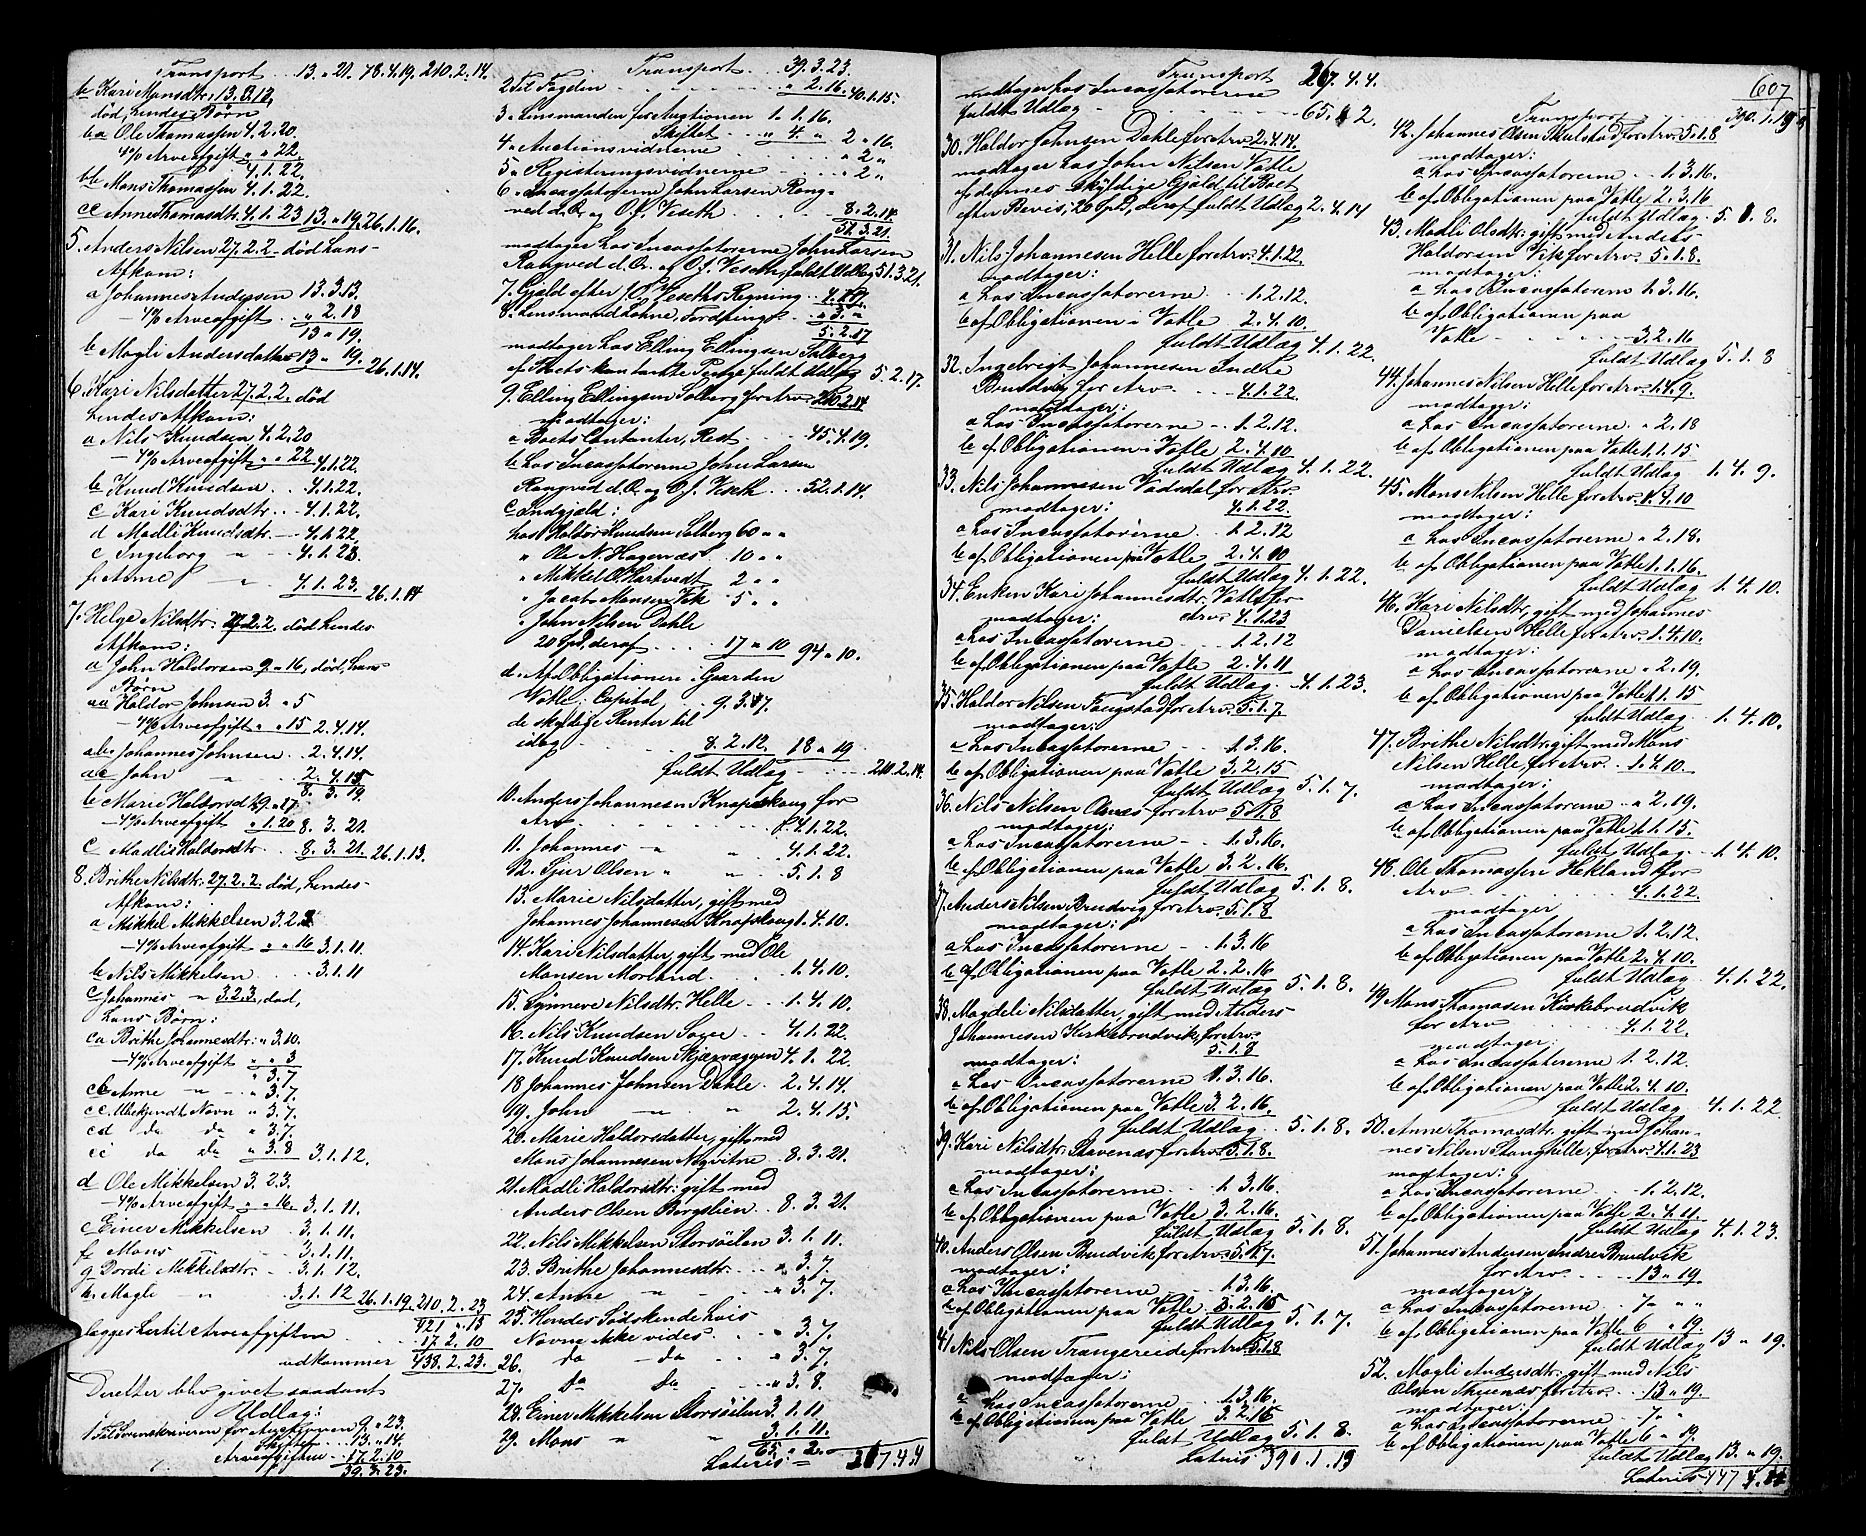 Transport .. 13 " 21. 78.4.19. 210.2.14.
b Kari Mansdtr. 13.3.13,
død, hendes Børn
ba Ole Thomassen 4.2.20
4% Arveafgift " " 22.
4.1.22.
bb Mons Thomassen 4.1.22.
cc Anne Thomasdtr. 4.1.23 13 " 19. 26.1.16.
5. Anders Nilsen 27.2.2. død hans
Afkom:
a Johannes Andersen 13.3.13.
- 4% Arveafgift .. " 2.18
13 " 19.
b Magli Andersdatter 13 " 19. 26.1.14.
6. Kari Nilsdatter 27.2.2. død
hendes Afkom:
a Nils Knudsen 4.2.20
- 4% Arveafgift " " 22 4.1.22.
b Knud Knudsen .. 4.1.22.
c Kari Knudsdtr. .. 4.1.22.
d Madli Knudsdtr. 4.1.22
e Ingeborg " - 4.1.23.
f Anne " - 4.1.23. 26.1.14
7. Helge Nilsdtr. 27.2.2. død hendes
Afkom:
a John Haldorsen 9 " 16, død, hans
Børn
aa Haldor Johnsen 3. " 5
- 4% Arveafgift " " 15 2.4.14.
ab Johannes Johnsen .. 2.4.14.
ac John " .. 2.4.15
8.3.19.
b Marie Haldorsdtr. 9 " 17.
- 4% Arveafgift " 1.20 8.3.21.
c Madli Haldorsdtr. .. 8.3.21. 26.1.13.
8. Brithe Nilsdtr. 27.2.2. død, hendes
Afkom:
a Mikkel Mikkelsen 3.2.3
- 4% Arveafgift " " 16 3.1.11.
b Nils Mikkelsen .. 3.1.11
c Johannes " 3.2.3, død,
hans Børn:
ca Brithe Johannesdtr. " 3.10.
- 4% Arveafgift " " 3
" 3.7
cb Anne " - " 3.7.
cc Ubekjendt Navn " 3.7.
cd do do " 3.7.
ce do do " 3.8 3.1.12.
d Ole Mikkelsen 3.2.3.
- 4% Arveafgift " " 16. 3.1.11.
e Einer Mikkelsen 3.1.11.
f Mons - 3.1.11.
g Dordi Mikkelsdtr. - 3.1.12.
h. Magli - " .. 3.1.12 26.1.19. 210.2.23
421 " 13
lægges hertil Arveafgiften .. 17.2.10
udkommer 438.2.23.
Derefter blev givet saadant
Udlæg:
1 Til Sorenskriveren for Auctionen 9. " 23.
Skiftet .. 13 " 14.
Arveafgiften .. 17.2.10
39.3.23.
Transport .. 39.3.23.
2 Til Fogden .. " 2.16. 40.1.15.
3 " Lensmanden for Augtionen 1.1.16.
Skiftet .. " 4 " 2 " 16.
4 " Auctionsvidnerne .. " 2 "
5 " Registeringsvidnerne .. " 2 "
6 " Incassatorerne John Larsen Rong-
ved d. Æ. og O. J. Veseth .. 8.2.14.
51.3.21.
modtager hos Incassatorerne John Larsen
Rongved d. Æ. og O. J. Veseth, fuldt Udlæg 51.3.21.
7. Gjæld efter J. O. Veseths Regning .. 4.4.17.
8. Lensmand Lohne, Fordring .. " 3 "
5.2.17
modtager hos Elling Ellingsen Solberg
af Boets kontante Penge fuldt Udlæg 5.2.17.
9. Elling Ellingsen Solberg for Arv 210.2.14
modtager:
a Boets Contanter, Rest .. 45.4.19.
b hos Incassatorerne John Larsen
Rongved d. Æ. og O. J. Veseth .. 52.1.14.
c Indgjæld:
hos Haldor Knudsen Solberg 60 " "
" Ole N. Hagenæs 10 " "
" Mikkel O. Hartvedt 2 " "
" Jacob Monsen Vik 5 " "
" John Nilsen Dahle
20 Spd, deraf .. 17 " 10 94 " 10.
d. Af Obligationen i Gaarden
Vatle: Capital .. 9.3.17.
de skyldige Renter til
idag .. 8.2.12. 18 " 19
fuldt Udlæg .. 210.2.14.
10. Anders Johannesen Knapskaug for
Arv .. 4.1.22.
11. Johannes " " .. 4.1.22.
12. Sjur Olsen " " .. 5.1.8
13. Marie Nilsdatter, gift med
Johannes Johannesen Knapskaug 1.4.10.
14. Kari Nilsdatter, gift med Ole
Monsen Morland .. 1.4.10.
15. Synneve Nilsdtr. Helle .. 1.4.10.
16. Nils Knudsen .. 4.1.22.
17. Knud Knudsen Skjærvaggen 4.1.22.
18 Johannes Johnsen Dahle .. 2.4.14.
19. John - " 2.4.15.
20. Marie Haldorsdatter, gift med
Mons Johannesen Nygvitne .. 8.3.21.
21. Madli Haldorsdtr. gift med
Anders Olsen Bergslien .. 8.3.21.
22. Nils Mikkelsen Storsøilen 3.1.11.
23. Brithe Johannesdtr. .. " 3.7.
24. Anne - " .. " 3.7.
25. Hendes Sødskende hvis
Navne ikke vides .. " 3.7.
26. do - do .. " 3.7.
27. do do - .. " 3.8.
28. Einer Mikkelsen Storsøilen 3.1.11.
29. Mons " " 3.1.11.
65. " 2.
Lateris - 367.4.4
Transport 367.4.4.
modtager hos Incassatorerne
fuldt Udlæg .. 65. " 2.
30. Haldor Johnsen Dahle for Arv 2.4.14.
modtager hos John Nilsen Vatle
af dennes skyldige Gjæld til Boet
efter Bevis, 20 Spd, deraf fuldt Udlæg 2.4.14
31. Nils Johannesen Helle for Arv 4.1.22.
modtager:
a hos Incassatorerne .. 1.2.12.
b af Obligationen i Vatle 2.4.10.
fuldt Udlæg 4.1.22.
32. Ingebrigt Johannesen Indre
Brudvig for Arv .. 4.1.22.
modtager:
a hos Incassatorerne .. 1.2.12.
b af Obligationen i Vatle 2.4.10
fuldt Udlæg 4.1.22.
33. Nils Johannesen Vadsdal for Arv
modtager: 4.1.22.
a hos Incassatorerne .. 1.2.12
b af Obligationen paa Vatle 2.4.10
fuldt Udlæg 4.1.22.
34. Enken Kari Johannesdtr. Vatle for
modtager: Arv 4.1.23
a hos Incassatorerne 1.2.12
b af Obligationen paa Vatle 2.4.11
fuldt Udlæg .. 4.1.23.
35. Haldor Nilsen Fangstad for Arv 5.1.7.
modtager:
a hos Incassatorerne .. 1.3.16.
b af Obligationen paa Vatle 3.2.15
fuldt Udlæg 5.1.7.
36. Nils Nilsen Olsnes for Arv 5.1.8
modtager:
a hos Incassatorerne .. 1.3.16.
b af Obligationen paa Vatle 3.2.16.
fuldt Udlæg 5.1.8.
37. Anders Nilsen Brudvig for Arv 5.1.8
modtager:
a hos Incassatorerne .. 1.3.16
b af Obligationen paa Vatle 2.2.16
fuldt Udlæg 5.1.8.
38. Magdeli Nilsdatter, gift med Anders
Johannesen Kirkebrudvik, for Arv
modtager: 5.1.8
a hos Incassatorerne 1.3.16.
b af Obligationen paa Vatle 3.2.16.
fuldt Udlæg .. 5.1.8.
39. Kari Nilsdtr. Stavenæs for Arv 5.1.8.
modtager:
a hos Incassatorerne .. 1.3.16.
b af Obligationen paa Vatle 3.2.16.
fuldt Udlæg 5.1.8.
40. Anders Olsen Brudvik for Arv 5.1.7.
modtager:
a hos Incassatorerne .. 1.3.16.
b af Obligationen paa Vatle 3.2.15
fuldt Udlæg 5.1.7.
41. Nils Olsen Trangereide for Arv 5.1.8
modtager:
a hos Incassatorerne .. 1.3.16.
b af Obligationen paa Vatle 3.2.16
fuldt Udlæg 5.1.8.
Lateris 390.1.19
607
Transport .. 390.1.19
42. Johannes Olsen Skulstad for Arv 5.1.8
modtager:
a hos Incassatorerne .. 1.3.16.
b af Obligationen paa Vatle 2.3.16
fuldt Udlæg 5.1.8.
43. Madli Olsdtr. gift med Anders
Haldorsen Vik for Arv 5.1.8.
modtager:
a hos Incassatorerne 1.3.16.
b af Obligationen paa
Vatle .. 3.2.16
fuldt Udlæg 5.1.8
44. Johannes Nilsen Helle for Arv 1.4.9.
modtager:
a hos Incassatorerne " 2.18
b af Obligationen paa Vatle 1.1.15
fuldt Udlæg 1.4.9.
45. Mons Nilsen Helle for Arv 1.4.10
modtager:
a hos Incassatorerne " 2.18.
b af Obligationen paa Vatle 1.1.16.
fuldt Udlæg 1.4.10.
46. Kari Nilsdtr. gift med Johannes
Danielsen Helle for Arv 1.4.10.
modtager:
a hos Incassatorerne " 2.19.
b af Obligationen paa Vatle 1.1.15
fuldt Udlæg .. 1.4.10.
47. Brithe Nilsdtr. gift med Mons
Nilsen Helle, for Arv .. 1.4.10.
modtager:
a hos Incassatorerne " 2.19.
b af Obligationen paa Vatle 1.1.15.
fuldt Udlæg .. 1.4.10.
48. Ole Thomassen Hekland for
Arv .. 4.1.22.
modtager
a hos Incassatorerne 1.2.12.
b af Obligationen paa Vatle 2.4.10.
fuldt Udlæg 4.1.22.
49 Mons Thomasen Kirkebrudvik
for Arv .. 4.1.22.
modtager:
a hos Incassatorerne 1.2.12.
b af Obligationen paa Vatle 2.4.10.
fuldt Udlæg .. 4.1.22
50. Anne Thomasdtr. gift med Johan-
nes Nilsen Stanghelle, for Arv 4.1.23
modtager:
a hos Incassatorerne .. 1.2.12.
b af Obligationen paa Vatle 2.4.11.
fuldt Udlæg 4.1.23.
51. Johannes Andersen Indre Brudvik
for Arv .. 13 " 19
modtager:
a hos Incassatorerne .. 7 " "
b af Obligationen paa Vatle 6 " 19.
fuldt Udlæg 13 " 19.
52. Magli Andersdtr. gift med Nils
Olsen Thuenæs for Arv .. 13 " 19.
modtager:
a hos Incassatorerne .. 7 "
b af Obligationen paa Vatle 6 " 19.
fuldt Udlæg 13. " 19.
Lateris 447